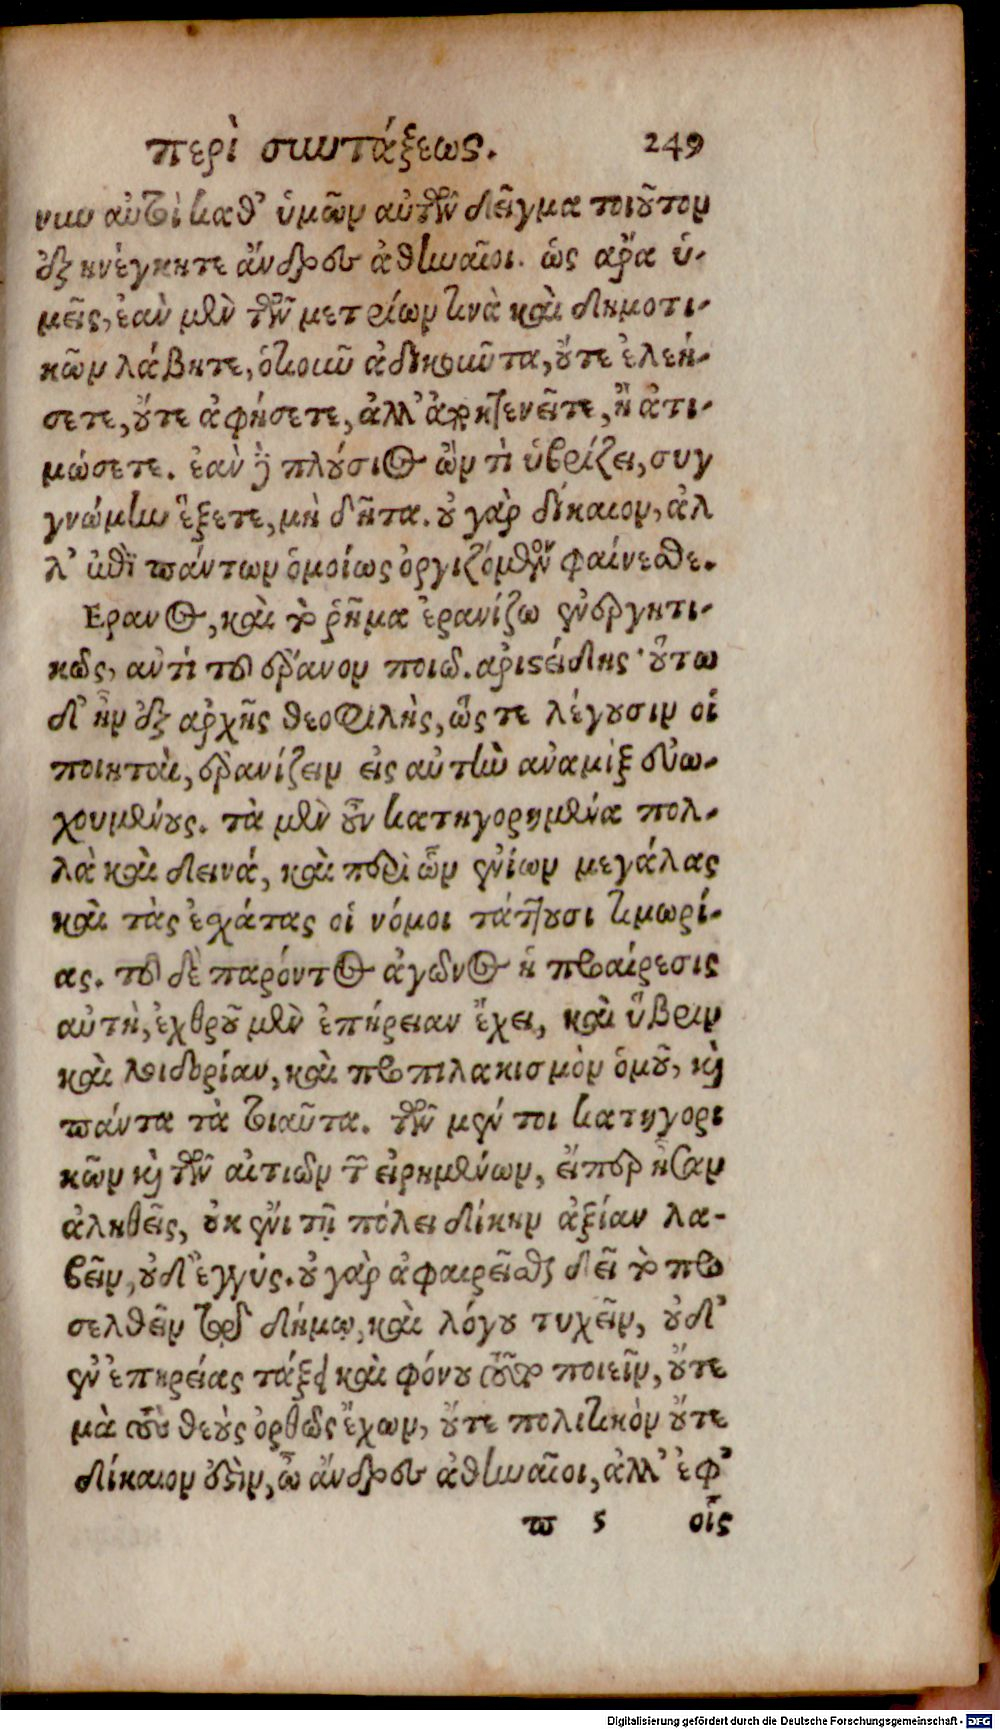 περὶ συντάξεως. 249
νῦν αὐτοὶ καθ' ὑμῶν αὐτῶν δεῖγμα τοιοῦτον
ἐξηνέγκητε ἄνδρες ἀθηναῖοι. ὡς ἄρα ὑ-
μεῖς, ἐὰν μὲν τῶν μετρίων τινὰ καὶ δημοτι-
κῶν λάβητε, ὁτιοῦν ἀδικοῦντα, οὔτε ἐλεή-
σετε, οὔτε ἀφήσετε, ἀλλ' ἀποκτενεῖτε, ἢ ἀτι-
μώσετε. ἐὰν δὲ πλούσιος ὢν τὶ ὑβρίζει, συγ
γνώμην ἕξετε, μὴ δῆτα. οὐ γὰρ δίκαιον, ἀλ
λ' ἐπὶ πάντων ὁμοίως ὀργιζόμενοι φαίνεσθε.
Ερανος, καὶ τὸ ῥῆμα ἐρανίζω ἐνεργητι-
κῶς, αὐτὶ τοῦ ἔρανον ποιῶ. ἀριστείδης· οὕτω
δ' ἦν ἐξ ἀρχῆς θεοφιλὴς, ὥς τε λέγουσιν οἱ
ποιηταὶ, ἐρανίζειν εἰς αὐτὴν ἀναμὶξ εὐω-
χουμένους. τὰ μὲν οὖν κατηγορημένα πολ-
λὰ καὶ δεινά, καὶ περὶ ὧν ἐνίων μεγάλας
καὶ τὰς ἐσχάτας οἱ νόμοι τάττουσι τιμωρί-
ας. τοῦ δὲ παρόντος ἀγῶνος ἡ προαίρεσις
αὐτὴ, ἐχθροῦ μὲν ἐπήρειαν ἔχει, καὶ ὕβριν
καὶ λοιδορίαν, καὶ προπιλακισμὸν ὁμοῦ, καὶ
πάντα τὰ τοιαῦτα. τῶν μέν τοι κατηγορι
κῶν καὶ τῶν αἰτιῶν τῶν εἰρημένων, εἴπερ ἦσαν
ἀληθεῖς, οὐκ ἔνι τῇ πόλει δίκην ἀξίαν λα-
βεῖν, οὐδ' ἐγγύς. οὐ γὰρ ἀφαιρεῖσθαι δεῖ τὸ προ
σελθεῖν τῷ δήμῳ, καὶ λόγου τυχεῖν, οὐδ'
ἐν ἐπηρείας τάξει καὶ φόνου τοῦτο ποιεῖν, οὔτε
μὰ τοὺς θεοὺς ὀρθῶς ἔχων, οὔτε πολιτικὸν οὔτε
δίκαιον ἐστὶν, ὦ ἄνδρες ἀθηναῖοι, ἀλλ' ἐφ'
π 5 οἷς
Digitalisierung gefördert durch die Deutsche Forschungsgemeinschaft - DFG